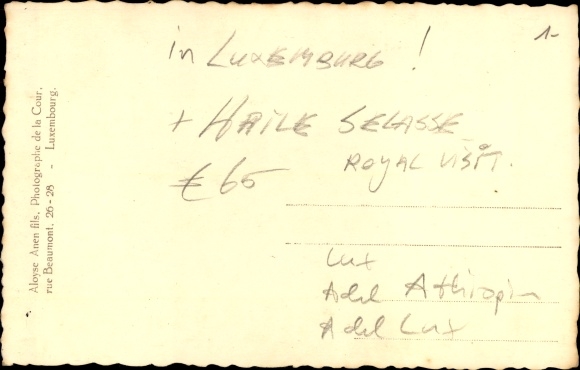 1-
in LUXEMBURG !
+ HAILE SELASSE
ROYAL VISIT.
€ 65
Lux
Adel Äthiopien
Adel Lux
Aloyse Anen fils, Photographe de la Cour,
rue Beaumont, 26-28 - Luxembourg.